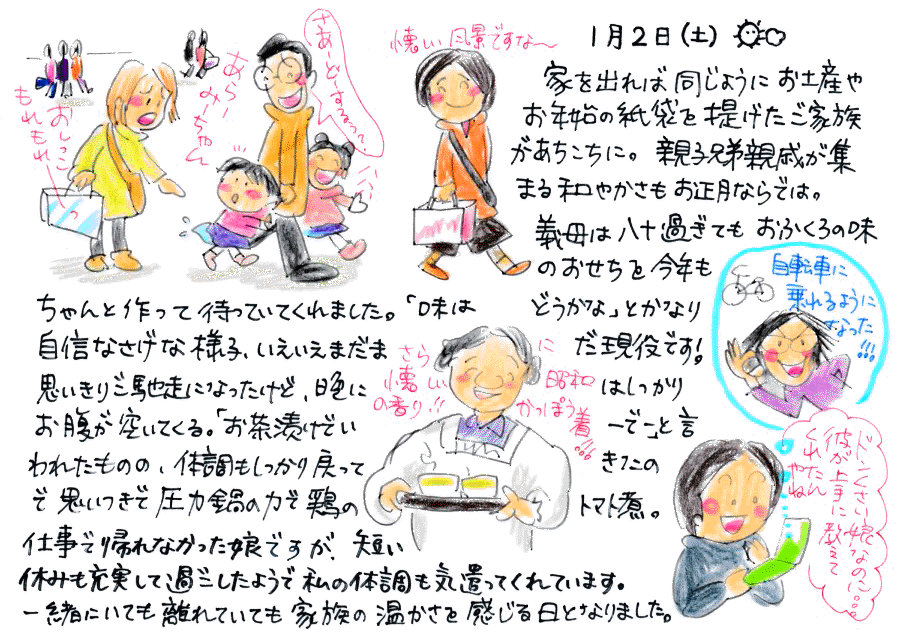 1月2日(土)
家を出れば同じように お土産や
お年始の紙袋を提げたご家族
があちこちに。親子兄弟親戚が集
まる和やかさもお正月ならでは。
義母は八十過ぎても おふくろの味
のおせちを今年も
ちゃんと作って待っていてくれました。「味は どうかな」とかなり
自信なさげな様子、いえいえまだま だ現役です!
思いきりご馳走になったけど、晩に はしっかり
お腹が空いてくる。「お茶漬けでい ーでー」と言
われたものの、体調もしっかり戻って きたの
で思いつきで圧力鍋の力で鶏の トマト煮。
仕事で帰れなかった娘ですが、短い
休みも充実して過ごしたようで私の体調も気遣ってくれています。
一緒にいても離れていても 家族の温かさを感じる日となりました。
おしっこ
もれもれ〜
あらー
みーちゃん
懐しい風景ですな〜
さらに
懐しい昭和
の香り!!かっぽう着!!!
自転車に
乗れるように
なった!!!
ドンくさい娘なのに…
彼が上手に教えて
くれたんやね